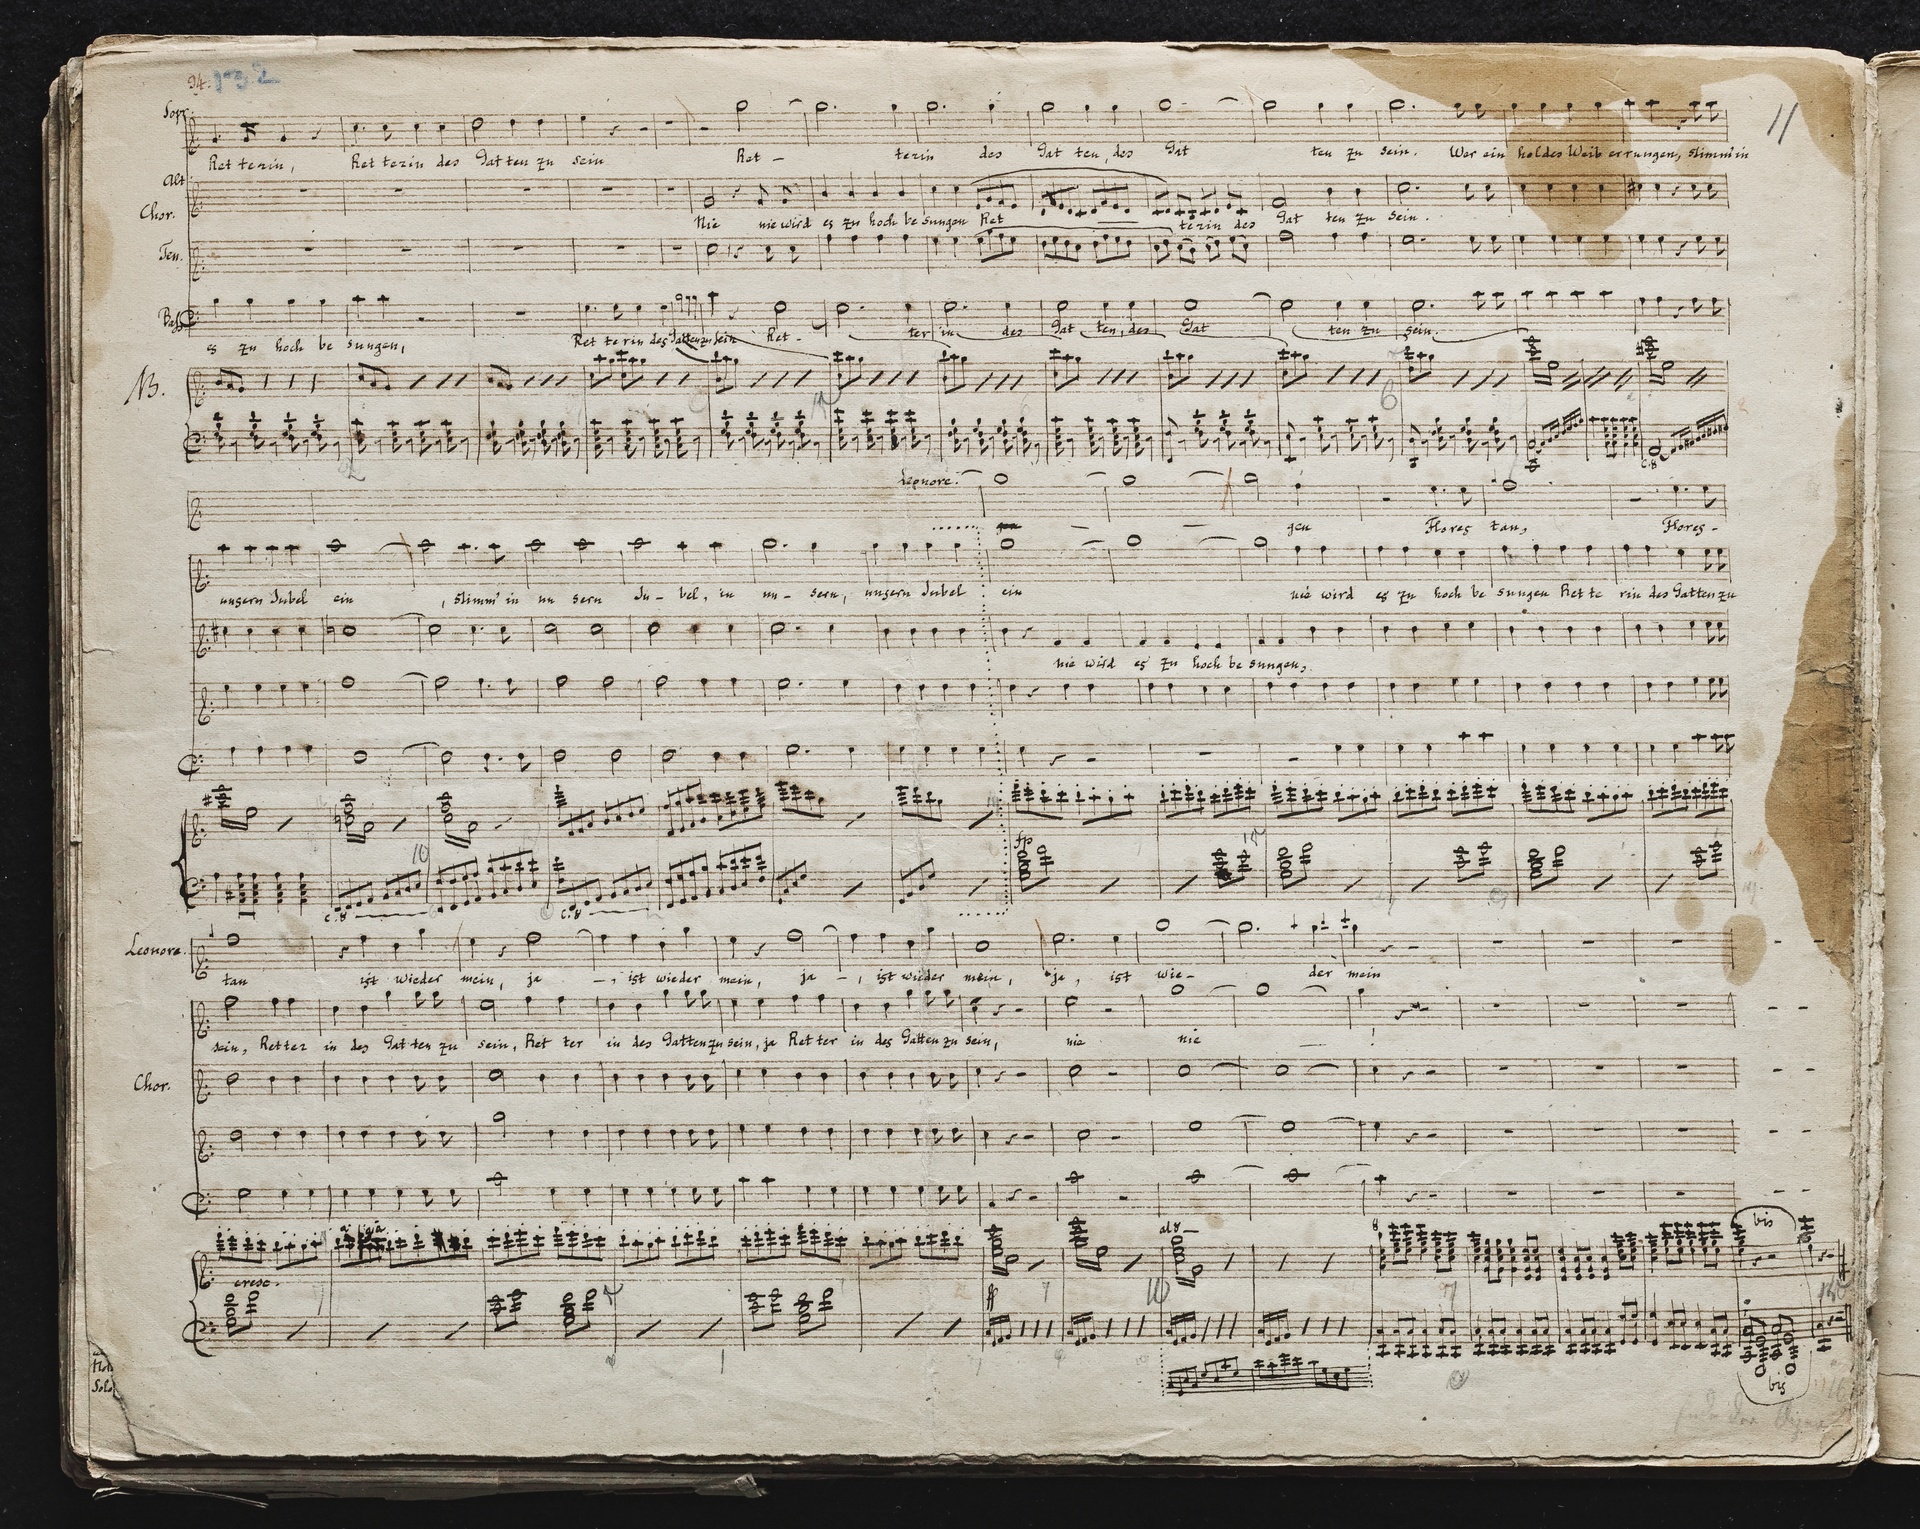 94. 132
11
Sopr.
Ret terin, Ret terin des Gat ten zu sein Ret - terin des Gat ten, des Gat ten zu sein. Wer ein holdes Weib errungen, stimm' in
Alt
Chor.
Nie nie wird es zu hoch be sungen Ret terin des Gat ten zu sein.
Ten.
Bass
es zu hoch be sungen, Ret te rin des Gatten zu sein Ret - ter in des Gat ten, des Gat ten zu sein.
NB.
6
c. 8
Leonore.
gen Flores tan, Flores -
unsern Jubel ein , stimm' in un sern Ju - bel, in un - sern, unsern Jubel ein nie wird es zu hoch be sungen Ret te rin des Gatten zu
nie wird es zu hoch be sungen,
fp
10
c. 8 c. 8
Leonore.
tan ist wieder mein, ja -, ist wieder mein, ja -, ist wieder mein, ja, ist wie - der mein
sein, Retter in des Gat ten zu sein, Ret ter in des Gatten zu sein, ja Ret ter in des Gatten zu sein, nie nie !
Chor.
al 8 8 bis
cresc.
ff 10
bis
Solo